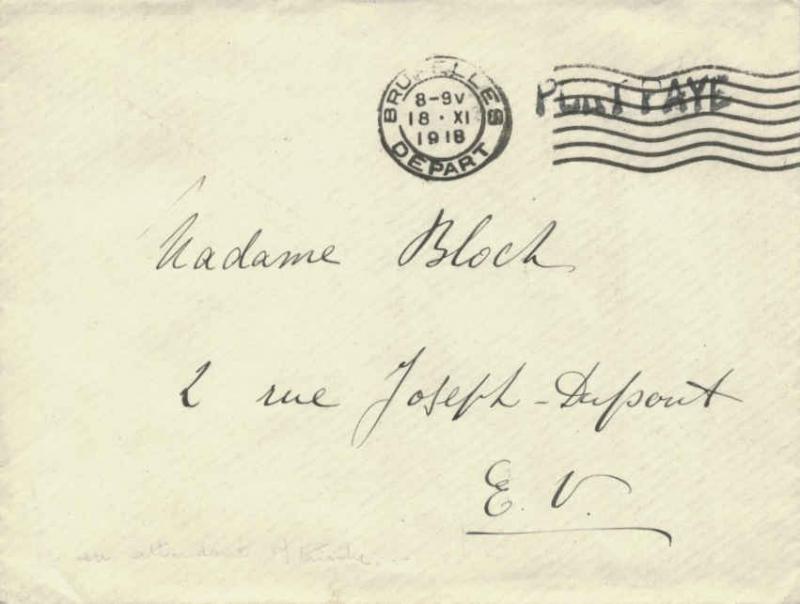 BRUXELLES
8-9V
18 · XI
1918
DEPART
PORT PAYE
Madame Bloch
2 rue Joseph-Dupont
E. V.
en attendant